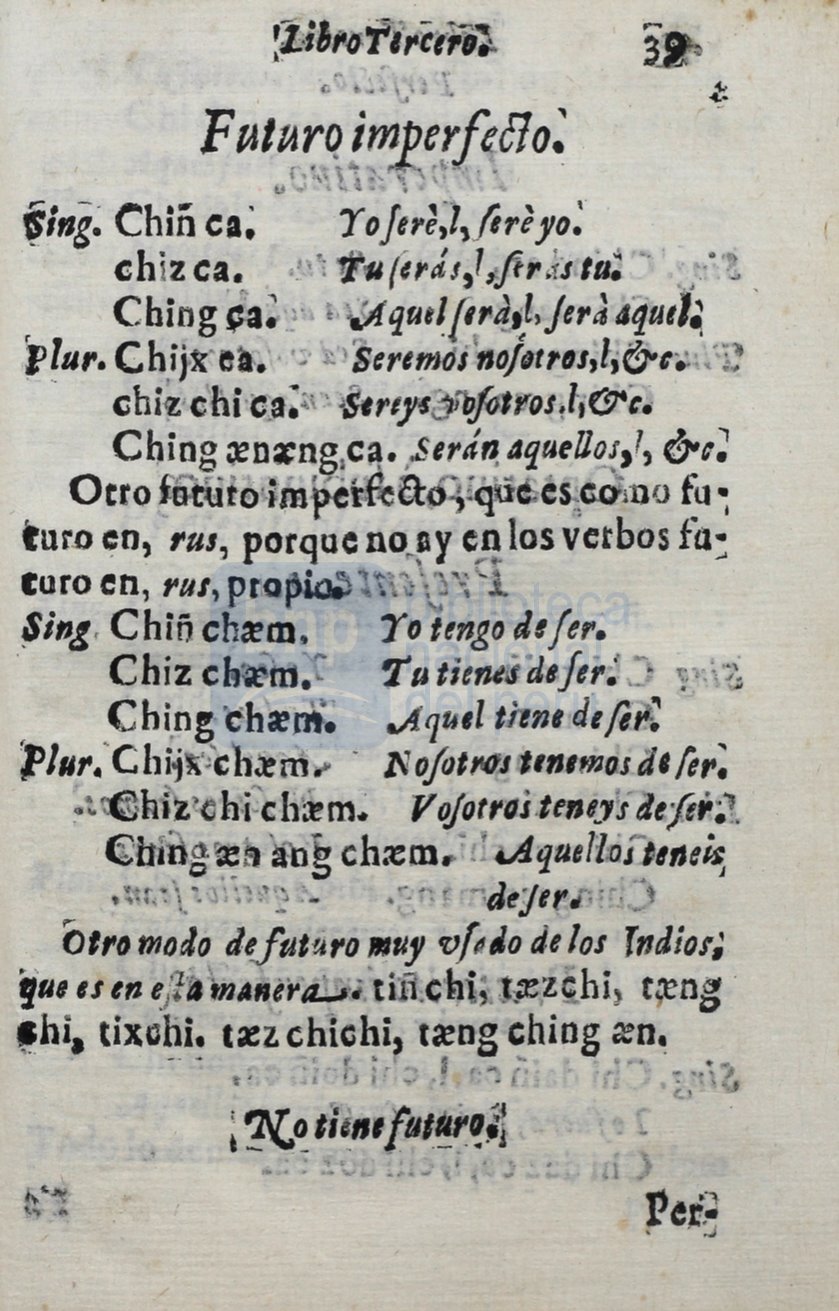 Libro Tercero. 39
Futuro imperfecto.
Sing. Chiñ ca. Yo ſerè, l, ſerè yo.
chiz ca. Tu ſerás, l, ſeràs tu.
Ching ca. Aquel ſerà, l, ſerà aquel.
Plur. Chijx ca. Seremos noſotros, l, &c.
chiz chi ca. Sereys voſotros, l, &c.
Ching ænæng ca. Serán aquellos, l, &c.
Otro futuro imperfecto, que es como fu-
turo en, rus, porque no ay en los verbos fu-
turo en, rus, propio.
Sing Chiñ chæm. Yo tengo de ſer.
Chiz chæm. Tu tienes de ſer.
Ching chæm. Aquel tiene de ſer.
Plur. Chijx chæm. Noſotros tenemos de ſer.
Chiz chi chæm. Voſotros teneys de ſer.
Ching æn ang chæm. Aquellos teneis
de ſer.
Otro modo de futuro muy vſado de los Indios,
que es en eſta manera. tiñ chi, tæzchi, tæng
chi, tixchi. tæz chichi, tæng ching æn.
No tiene futuro.
Per-